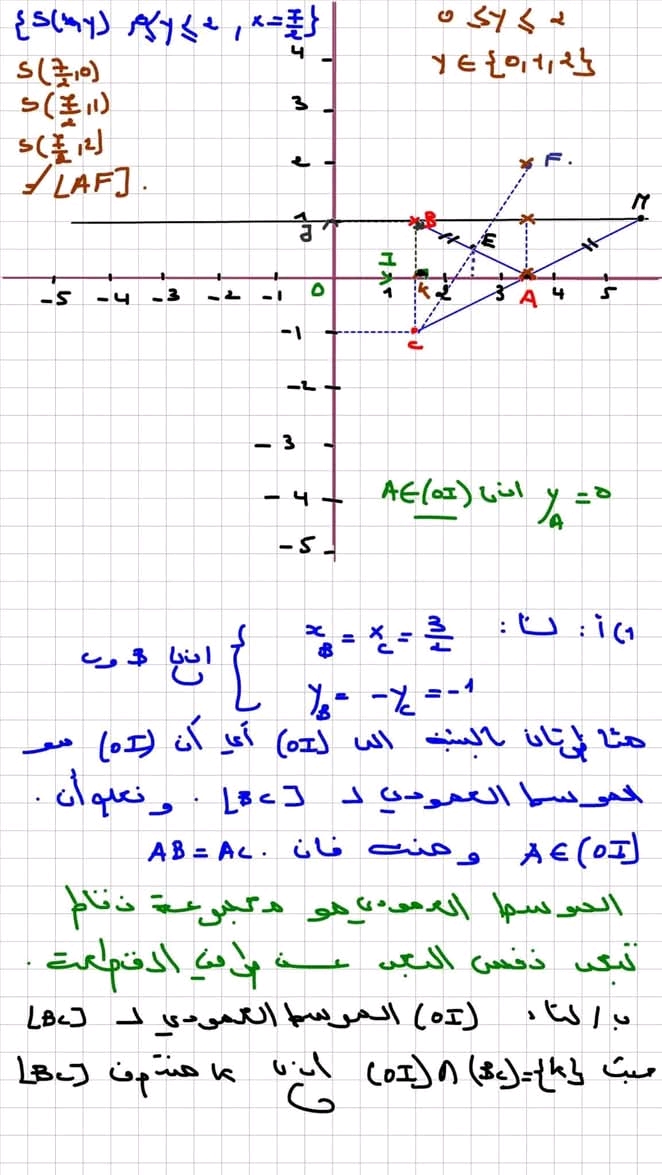 {S(x,y) / 0≤y≤2 , x=7/2}
0 ≤ y ≤ 2
S(7/2,0)
y ∈ {0,1,2}
S(7/2,1)
S(7/2,2)
[AF].
4
3
2
F.
1
J
B
M
E
I
O
K
A
C
-5 -4 -3 -2 -1 1 2 3 4 5
-1
-2
-3
-4
-5
A∈(OI) اذن y_A = 0
1) أ: لنا: x_B = x_C = 3/2
y_B = -y_C = -1
اذن B و C
متناظرتان بالنسبة الى (OI) أي أن (OI) هو
الموسط العمودي لـ [BC]. ونعلم أن
A∈(OI) ومنه فان AB=AC.
الموسط العمودي هو مجموعة نقاط
تبعد نفس البعد عن طرفي القطعة.
ب/ لنا، (OI) الموسط العمودي لـ [BC]
حيث (OI)∩(BC)={K} اذن K منتصف [BC]